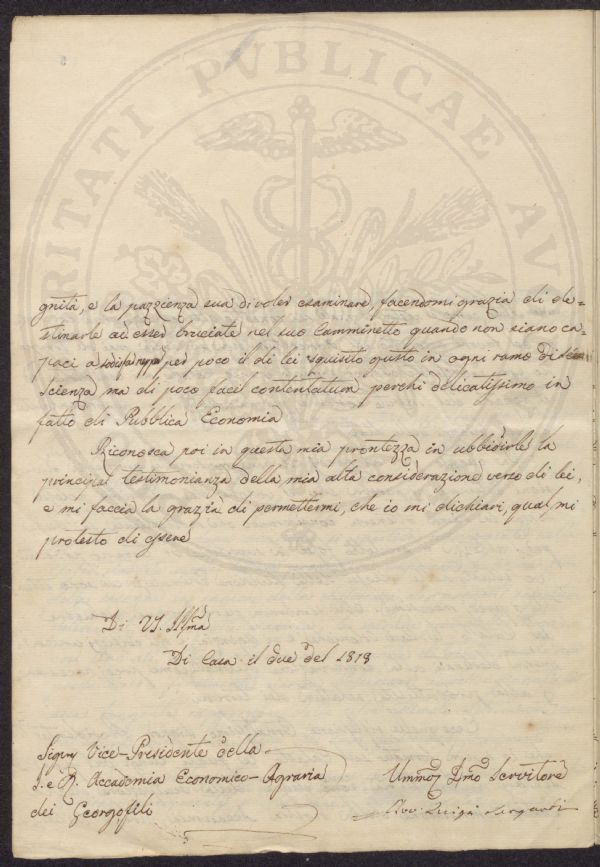 PROSPERITATI PUBLICAE AU
gnità, e la pazzienza sua di voler esaminare, facendomi grazia di de=
stinarle ad esser bruciate nel suo Camminetto quando non siano ca=
paci a per poco il di lei squisito gusto in ogni ramo di
scienza ma di poco facil contentatura perchè delicatissimo in
fatto di Pubblica Economia
Riconosca poi in questa mia prontezza in ubbidirle la
principal testimonianza della mia alta considerazione verso di lei,
e mi faccia la grazia di permettermi, che io mi dichiari, qual mi
protesto di essere
Di VS. Illma
Di Casa il due del 1818
Sigre Vice-Presidente della
I. e R. Accademia Economico-Agraria
dei Georgofili
Ummo Dmo Servitore
Luigi